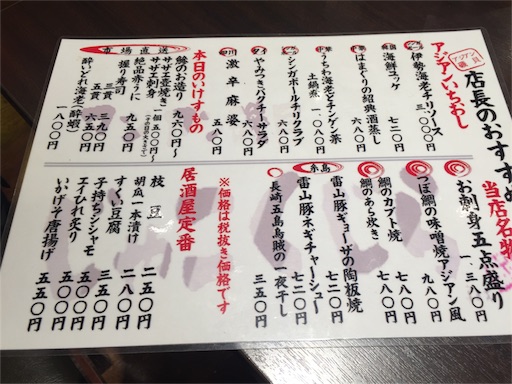 店長のおすすめ
アジアンいちおし
伊勢海老チリソース 三、〇〇〇円
韓国 海鮮ユッケ 七二〇円
中華 はまぐりの紹興酒蒸し 六八〇円
中華 うちわ海老とチンゲン菜 土鍋煮 一、〇八〇円
シンガポールチリクラブ 六八〇円
タイ やみつきパクチーサラダ 六八〇円
四川 激辛麻婆 五八〇円
本日のいけすもの
市場直送
鯵のお造り 九八〇円〜
サザエ刺身
サザエ壺焼き 一個 五〇〇円〜
絶品赤うに 九五〇円
握り寿司 三貫 三九〇円
五貫 六五〇円
酔いどれ海老(酔蝦) 一八〇〇円
当店名物
お刺身五点盛り 一、三八〇円
つぼ鯛の味噌焼アジアン風 九八〇円
鯛のカブト焼 七八〇円
鯛のあら炊き 七八〇円
糸島
雷山豚ギョーザの陶板焼 五八〇円
雷山豚ネギチャーシュー 五三〇円
長崎五島烏賊の一夜干し 三五〇円
※価格は税抜き価格です
居酒屋定番
枝豆 二五〇円
胡瓜一本漬け 二八〇円
すくい豆腐 二八〇円
子持ちシシャモ 三五〇円
エイひれ炙り 三五〇円
いかげそ唐揚げ 五五〇円